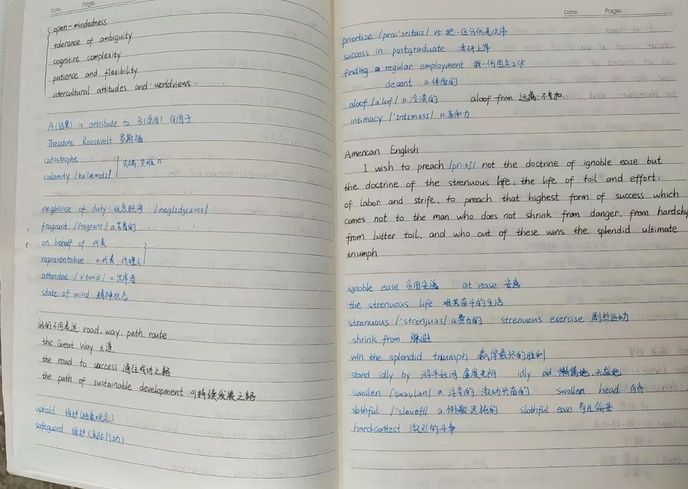 Date
Page
open-mindedness
tolerance of ambiguity
cognitive complexity
patience and flexibility
intercultural attitudes and worldviews
A(结果) is attribute to B(原因) 归因于
Theodore Roosevelt 罗斯福
catastrophe
calamity 灾祸, 灾难 n
neglience of duty
fragrant /fragrant/ a 芳香的
on behalf of 代表
representative n 代表, 代理人
attendee n 出席者
state of mind 精神状态
路的不同表达 road, way, path, route
the Great Way 大道
the road to success 通往成功之路
the path of sustainable development 可持续发展之路
uphold 维护
safeguard 维护
Date
Page
prioritize vt
success in postgraduate 考研上岸
finding a regular employment 找一份固定工作
decent a 体面的
aloof a 冷漠的 aloof from 远离, 不参加
intimacy n 亲密
American English
I wish to preach /pri:tʃ/ not the doctrine of ignoble ease but
the doctrine of the strenuous life, the life of toil and effort,
of labor and strife, to preach that highest form of success which
comes not to the man who does not shrink from danger, from hardship
from bitter toil, and who out of these wins the splendid ultimate
triumph
ignoble ease 贪图安逸 at ease 安逸
the strenuous life 艰苦奋斗的生活
strenuous /'strenjuəs/ a 费力的 strenuous exercise 剧烈运动
shrink from 躲避
win the splendid triumph 赢得最终的胜利
stand idly by idly ad 懒惰地
swollen a swollen head 自负
slothful a slothful ease
hard contest 激烈的斗争